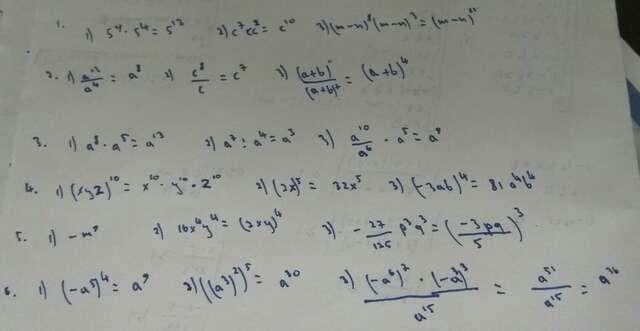 1. 1) 5⁴ · 5⁴ = 5¹³ 2) c⁷ c c² = c¹⁰ 3) (m-n)⁸ (m-n)³ = (m-n)¹¹
2. 1) a¹³/a⁴ = a⁸ 2) c⁸/c = c⁷ 3) /(a+b)² = (a+b)⁴
3. 1) a⁸ · a⁵ = a¹³ 2) a⁷ : a⁴ = a³ 3) a¹⁰/a⁶ · a⁵ = a⁹
4. 1) (xyz)¹⁰ = x¹⁰ · y¹⁰ · z¹⁰ 2) (2x)⁵ = 32x⁵ 3) (-3ab)⁴ = 81a⁴b⁴
5. 1) -m⁹ 2) 16x⁴y⁴ = (2xy)⁴ 3) - 27/125 p³q³ = (-3pq/5)³
6. 1) (-a⁵)⁴ = a⁹ 2) ((a³)²)⁵ = a³⁰ 3) (-a⁶)⁷ · (-a³)³/a¹⁵ = a⁵¹/a¹⁵ = a³⁶